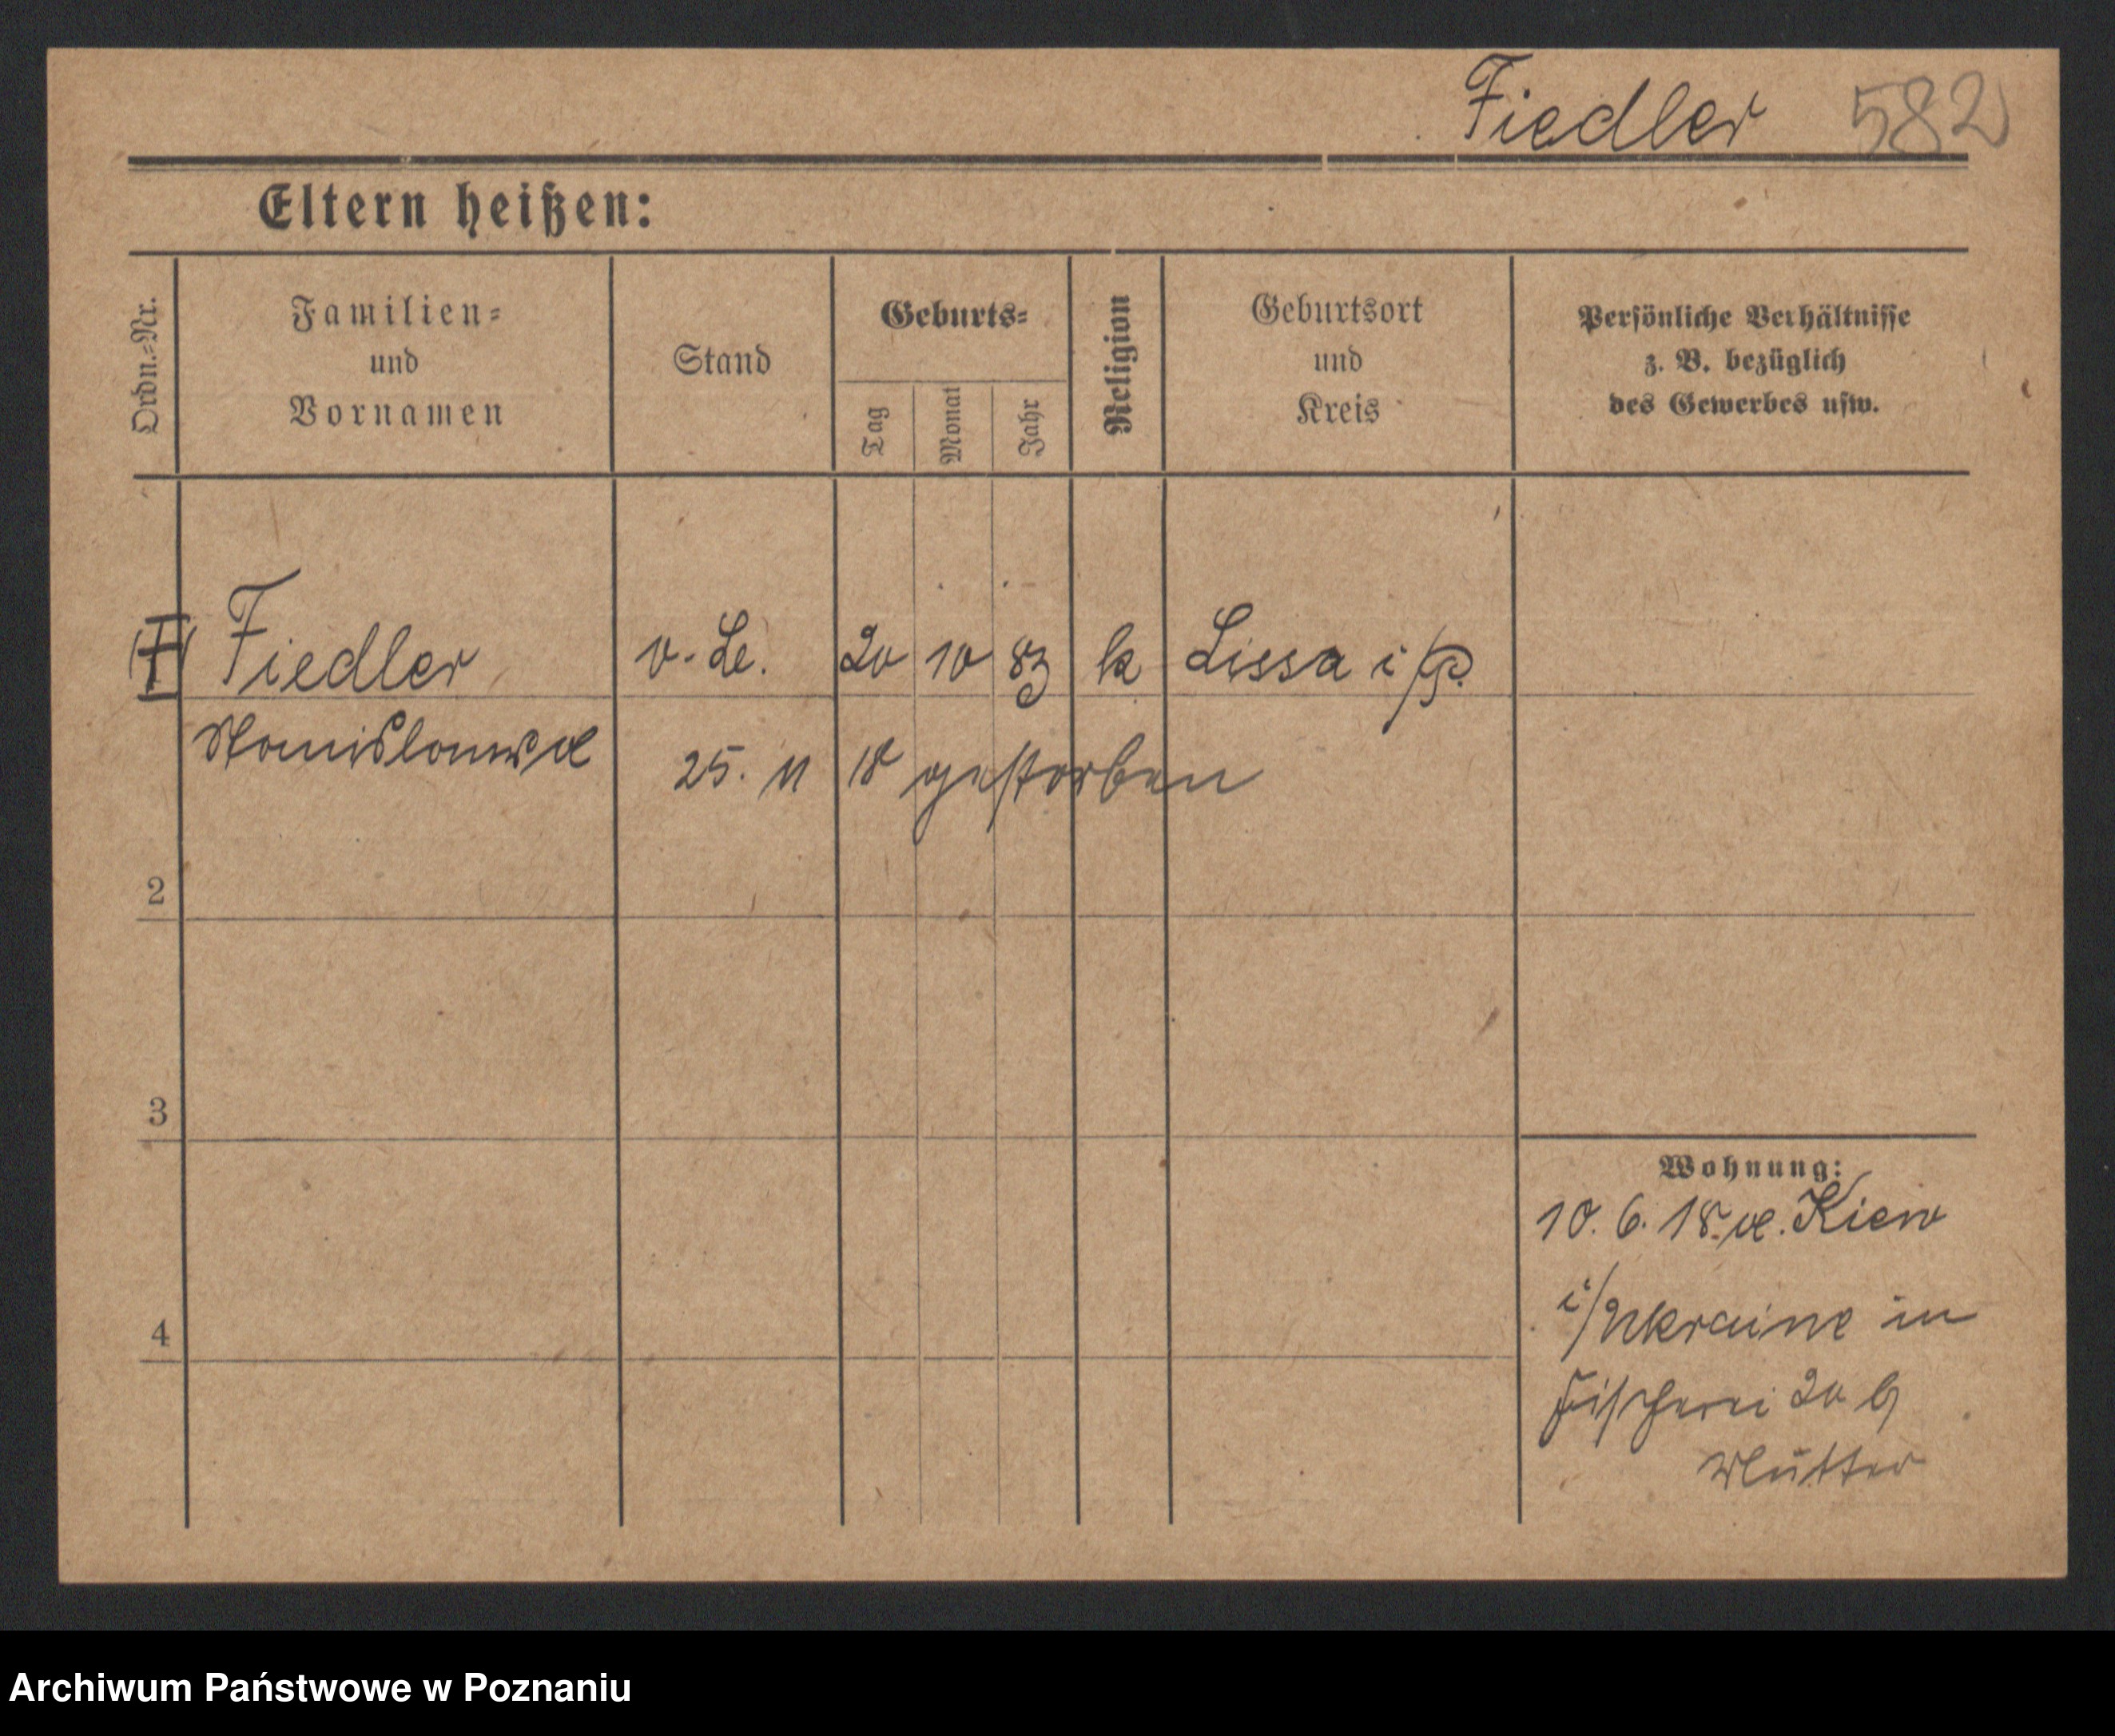 Fiedler 582
Eltern heißen:
Ordn.=Nr.
Familien=
und
Vornamen
Stand
Geburts=
Tag
Monat
Jahr
Religion
Geburtsort
und
Kreis
Persönliche Verhältnisse
z. B. bezüglich
des Gewerbes usw.
Fiedler v. Le. 20 10 83 k Lissa i/P.
Stanislawa
25. 11 18 gestorben
2
3
4
Wohnung:
10. 6. 18. Kiew
i/Ukraine in
Fischerei 20 b/
Mutter
Archiwum Państwowe w Poznaniu